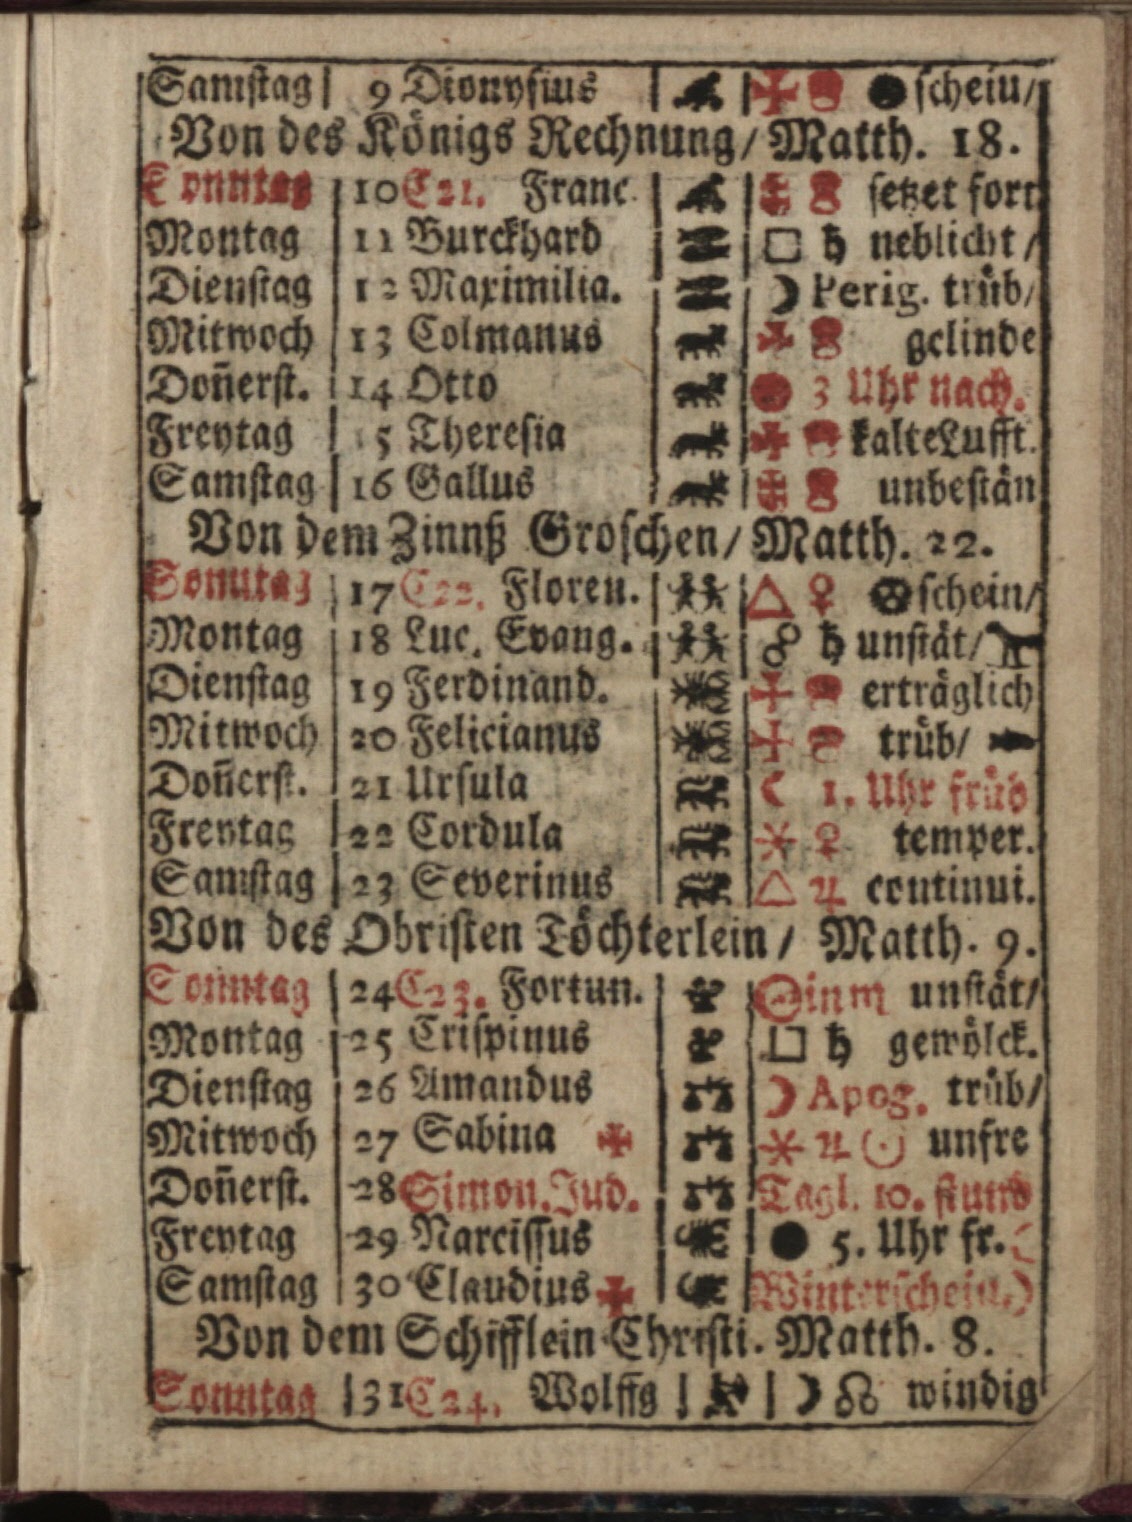 Samstag 9 Dionysius schein/
Von des Königs Rechnung/ Matth. 18.
Sonntag 10 C21. Franc. setzet fort
Montag 11 Burckhard □ ♄ neblicht/
Dienstag 12 Maximilia. ☽ Perig. trüb/
Mitwoch 13 Colmanus gelinde
Don̄erst. 14 Otto 3 Uhr nach.
Freytag 15 Theresia kalte Lufft.
Samstag 16 Gallus unbestän
Von dem Zinnß Groschen/ Matth. 22.
Sonntag 17 C22. Floren. △ ♀ schein/
Montag 18 Luc. Evang. ☍ ♄ unstät/
Dienstag 19 Ferdinand. erträglich
Mitwoch 20 Felicianus trüb/
Don̄erst. 21 Ursula ☾ 1. Uhr früh
Freytag 22 Cordula ⚹ ♀ temper.
Samstag 23 Severinus △ ♃ continui.
Von des Obristen Töchterlein/ Matth. 9.
Sonntag 24 C23. Fortun. ☉ in m unstät/
Montag 25 Crispinus □ ♄ gewölck.
Dienstag 26 Amandus ☽ Apog. trüb/
Mitwoch 27 Sabina ✠ ⚹ ♃ ☉ unfre
Don̄erst. 28 Simon. Jud. Tagl. 10. stund
Freytag 29 Narcissus ● 5. Uhr fr. (
Samstag 30 Claudius ✠ Winterschein.)
Von dem Schifflein Christi. Matth. 8.
Sonntag 31 C24. Wolffg ☽ ☊ windig